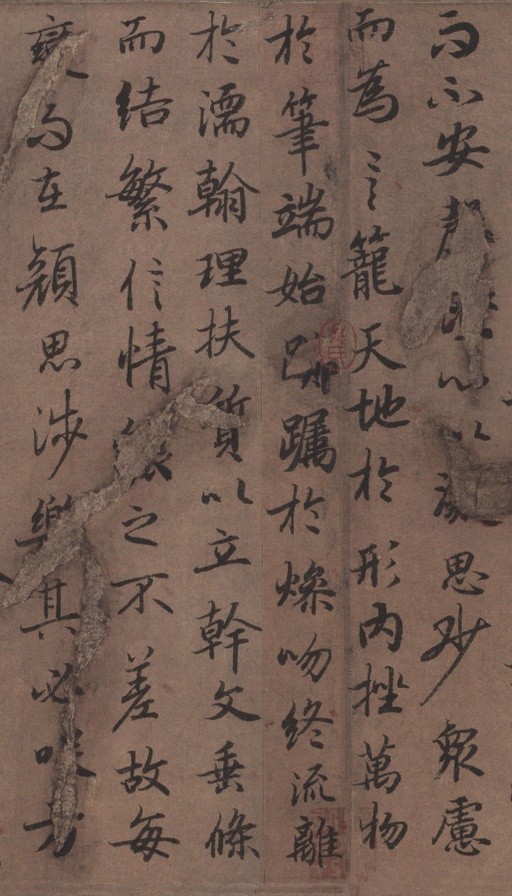 而不安心以思妙眾慮
而為言籠天地於形內挫萬物
於筆端始躑躅於燥吻終流離
於濡翰理扶質以立幹文垂條
而結繁信情之不差故每
變而在顏思涉樂其必咲方